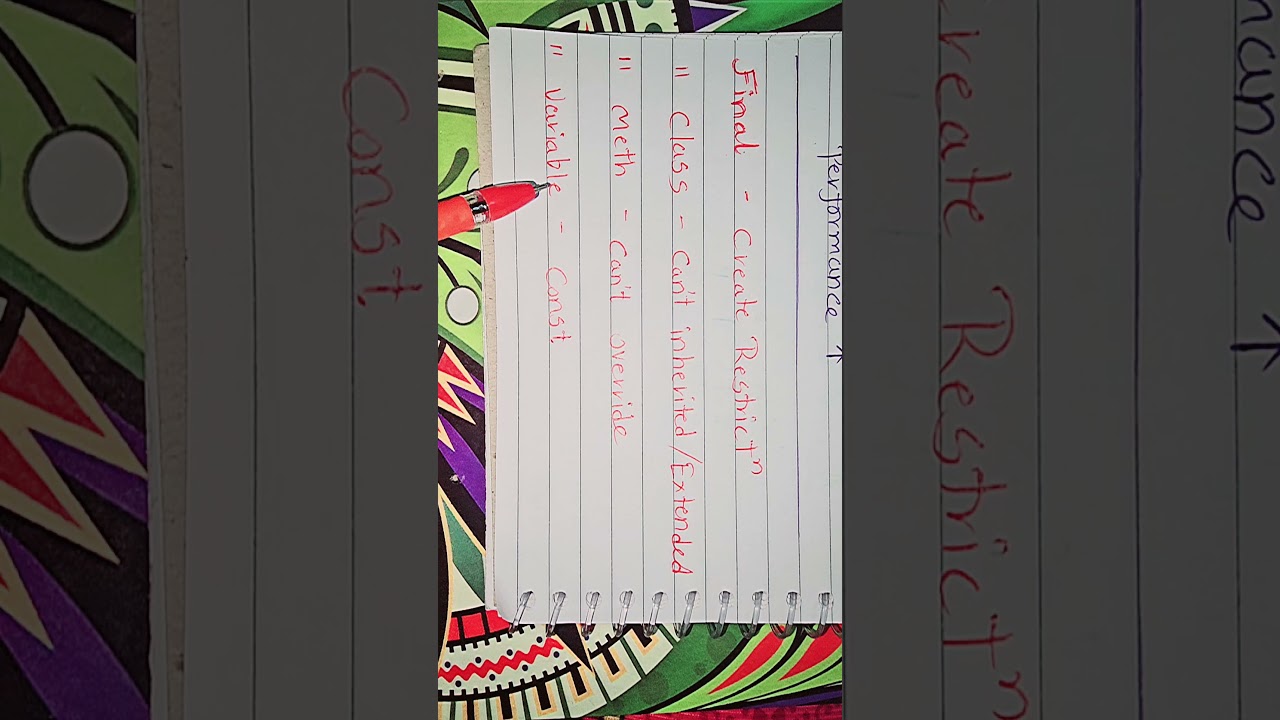 Performance ↑
Final - Create Restrictⁿ
" Class - Can't inherited/Extended
" Meth - Can't override
" Variable - Const